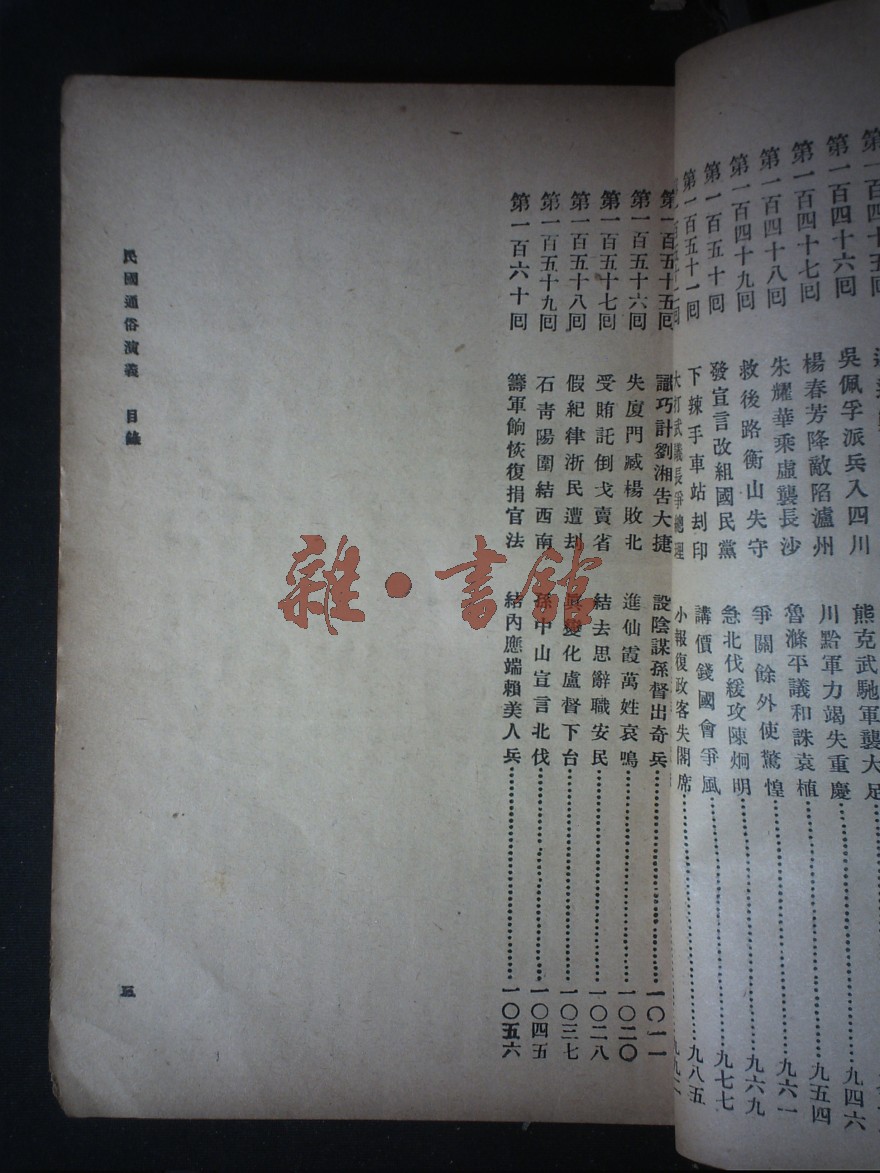 吳佩孚派兵入四川 熊克武馳軍襲大足
第一百四十六囘 楊春芳降敵陷瀘州 川黔軍力竭失重慶 九四六
第一百四十七囘 朱耀華乘虛襲長沙 魯滌平議和誅袁植 九五四
第一百四十八囘 救後路衡山失守 爭關餘外使驚惶 九六一
第一百四十九囘 發宣言改組國民黨 急北伐緩攻陳炯明 九六九
第一百五十囘 下辣手車站刦印 講價錢國會爭風 九七七
第一百五十一囘 大打武議長爭總理 小報復政客失閣席 九八五
第一百五十五囘 謳巧計劉湘吿大捷 設陰謀孫督出奇兵 一〇一一
第一百五十六囘 失廈門臧楊敗北 進仙霞萬姓哀鳴 一〇二〇
第一百五十七囘 受賄託倒戈賣省 結去思辭職安民 一〇二八
第一百五十八囘 假紀律浙民遭刦 真變化盧督下台 一〇三七
第一百五十九囘 石靑陽圍結西南 孫中山宣言北伐 一〇四五
第一百六十囘 籌軍餉恢復捐官法 結內應端賴美人兵 一〇五六
民國通俗演義 目錄
三
雜·書館